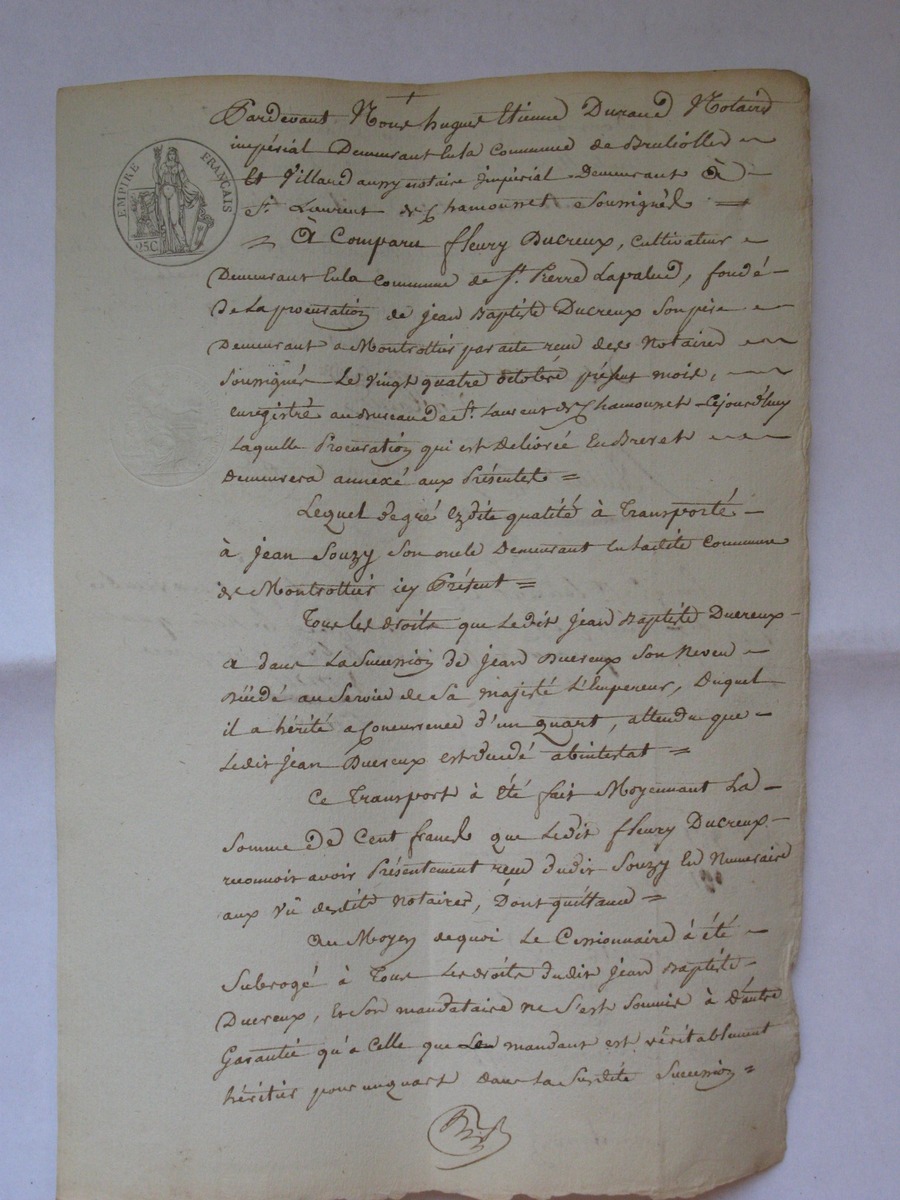 EMPIRE FRANÇAIS
25C
Pardevant Nous hugue Etienne Durand Notaire
impérial Demeurant En la Commune de Brulliolles
Et Villard aussy notaire Impérial Demeurant à
St. Laurent de Chamousset Soussignés =
= à Comparu fleury Ducreux, Cultivateur
Demeurant En la Commune de St. Pierre Lapalud, fondé
de La procuration de jean Baptiste Ducreux Son père
Demeurant a Montrottier par acte recu des Notaires
Soussignés Le vingt quatre octobre présent mois,
enregistré au Bureau de St. Laurent de Chamousset Cejourd'huy
Laquelle Procuration qui est Delivrée En Brevet
Demeurera annexé aux Présentes =
Lequel de gré Ezdite qualité à Transporté
à jean Souzy Son oncle Demeurant En Ladite Commune
de Montrottier icy Présent =
Tous les droits que Ledit jean Baptiste Ducreux
a dans La Succession de jean Ducreux Son Neveu
Décédé au Service de Sa majesté L'Empereur, Duquel
il a hérité a Concurrence d'un quart, attendu que
Ledit jean Ducreux est décédé abintestat =
Ce Transport à Eté fait Moyennant La
Somme de Cent francs que Ledit fleury Ducreux
reconnoit avoir Présentement recu dudit Souzy En Numeraire
aux vû desdits Notaires, Dont quittance =
Au Moyen de quoi Le Cessionnaire à été
Subrogé à Tous Les droits dudit jean Baptiste
Ducreux, Et Son mandataire ne S'est Soumis à d'autre
Garantie qu'a Celle que Le mandant est véritablement
héritier pour un quart dans La Susdite Succession =